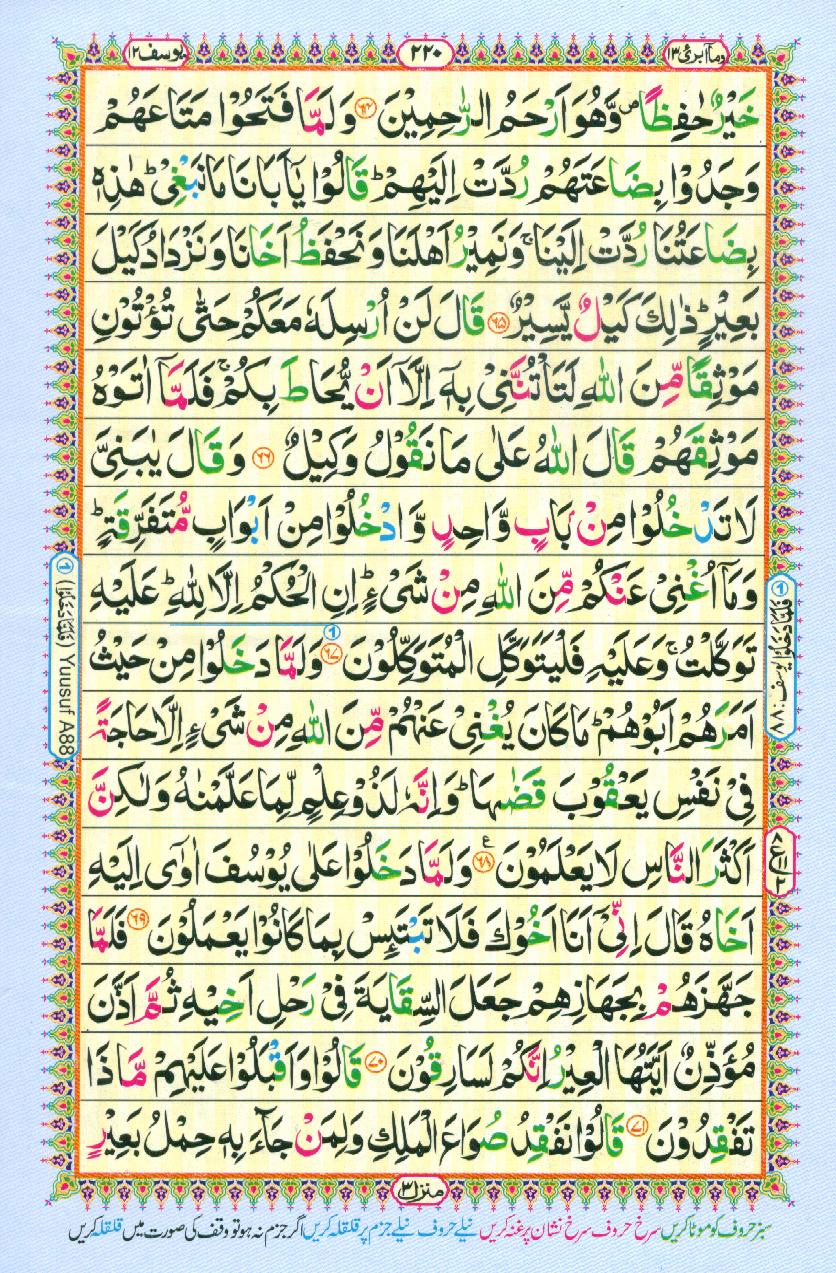 وما ابرئ ۱۳
۲۲۰
یوسف ۱۲
خَيْرٌ حٰفِظًا ۪ وَّهُوَ اَرْحَمُ الرّٰحِمِيْنَ ﴿۶۴﴾ وَلَمَّا فَتَحُوْا مَتَاعَهُمْ
وَجَدُوْا بِضَاعَتَهُمْ رُدَّتْ اِلَيْهِمْ ؕ قَالُوْا يٰۤاَبَانَا مَا نَبْغِيْ ؕ هٰذِهٖ
بِضَاعَتُنَا رُدَّتْ اِلَيْنَا ۚ وَنَمِيْرُ اَهْلَنَا وَنَحْفَظُ اَخَانَا وَنَزْدَادُ كَيْلَ
بَعِيْرٍ ؕ ذٰلِكَ كَيْلٌ يَّسِيْرٌ ﴿۶۵﴾ قَالَ لَنْ اُرْسِلَهٗ مَعَكُمْ حَتّٰى تُؤْتُوْنِ
مَوْثِقًا مِّنَ اللّٰهِ لَتَاْتُنَّنِيْ بِهٖۤ اِلَّاۤ اَنْ يُّحَاطَ بِكُمْ ۚ فَلَمَّاۤ اٰتَوْهُ
مَوْثِقَهُمْ قَالَ اللّٰهُ عَلٰى مَا نَقُوْلُ وَكِيْلٌ ﴿۶۶﴾ وَقَالَ يٰبَنِيَّ
لَا تَدْخُلُوْا مِنْۢ بَابٍ وَّاحِدٍ وَّادْخُلُوْا مِنْ اَبْوَابٍ مُّتَفَرِّقَةٍ ؕ
وَمَاۤ اُغْنِيْ عَنْكُمْ مِّنَ اللّٰهِ مِنْ شَيْءٍ ؕ اِنِ الْحُكْمُ اِلَّا لِلّٰهِ ؕ عَلَيْهِ
تَوَكَّلْتُ ۚ وَعَلَيْهِ فَلْيَتَوَكَّلِ الْمُتَوَكِّلُوْنَ ﴿۶۷﴾ ① وَلَمَّا دَخَلُوْا مِنْ حَيْثُ
اَمَرَهُمْ اَبُوْهُمْ ؕ مَا كَانَ يُغْنِيْ عَنْهُمْ مِّنَ اللّٰهِ مِنْ شَيْءٍ اِلَّا حَاجَةً
فِيْ نَفْسِ يَعْقُوْبَ قَضٰىهَا ؕ وَاِنَّهٗ لَذُوْ عِلْمٍ لِّمَا عَلَّمْنٰهُ وَلٰكِنَّ
اَكْثَرَ النَّاسِ لَا يَعْلَمُوْنَ ﴿۶۸﴾ ع وَلَمَّا دَخَلُوْا عَلٰى يُوْسُفَ اٰوٰۤى اِلَيْهِ
اَخَاهُ قَالَ اِنِّيْۤ اَنَا اَخُوْكَ فَلَا تَبْتَىِٕسْ بِمَا كَانُوْا يَعْمَلُوْنَ ﴿۶۹﴾ فَلَمَّا
جَهَّزَهُمْ بِجَهَازِهِمْ جَعَلَ السِّقَايَةَ فِيْ رَحْلِ اَخِيْهِ ثُمَّ اَذَّنَ
مُؤَذِّنٌ اَيَّتُهَا الْعِيْرُ اِنَّكُمْ لَسَارِقُوْنَ ﴿۷۰﴾ قَالُوْا وَاَقْبَلُوْا عَلَيْهِمْ مَّا ذَا
تَفْقِدُوْنَ ﴿۷۱﴾ قَالُوْا نَفْقِدُ صُوَاعَ الْمَلِكِ وَلِمَنْ جَآءَ بِهٖ حِمْلُ بَعِيْرٍ
① فَلَمَّا دَخَلُوْا یوسف: ۸۸
① (فَلَمَّا دَخَلُوْا) Yousuf A88
منزل ۳
سبز حروف کو موٹا کریں سرخ حروف سرخ نشان پر غنہ کریں نیلے حروف نیلے جزم پر قلقلہ کریں اگر جزم نہ ہو تو وقف کی صورت میں قلقلہ کریں